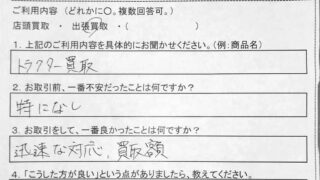 ご利用内容（どれかに○。複数回答可。）
店頭買取 ・ 出張買取 ・（　　　　　　）
1. 上記のご利用内容を具体的にお聞かせください。（例：商品名）
トラクター買取
2. お取引前、一番不安だったことは何ですか？
特になし
3. お取引をして、一番良かったことは何ですか？
迅速な対応、買取額
4. 「こうした方が良い」という点がありましたら、教えてください。